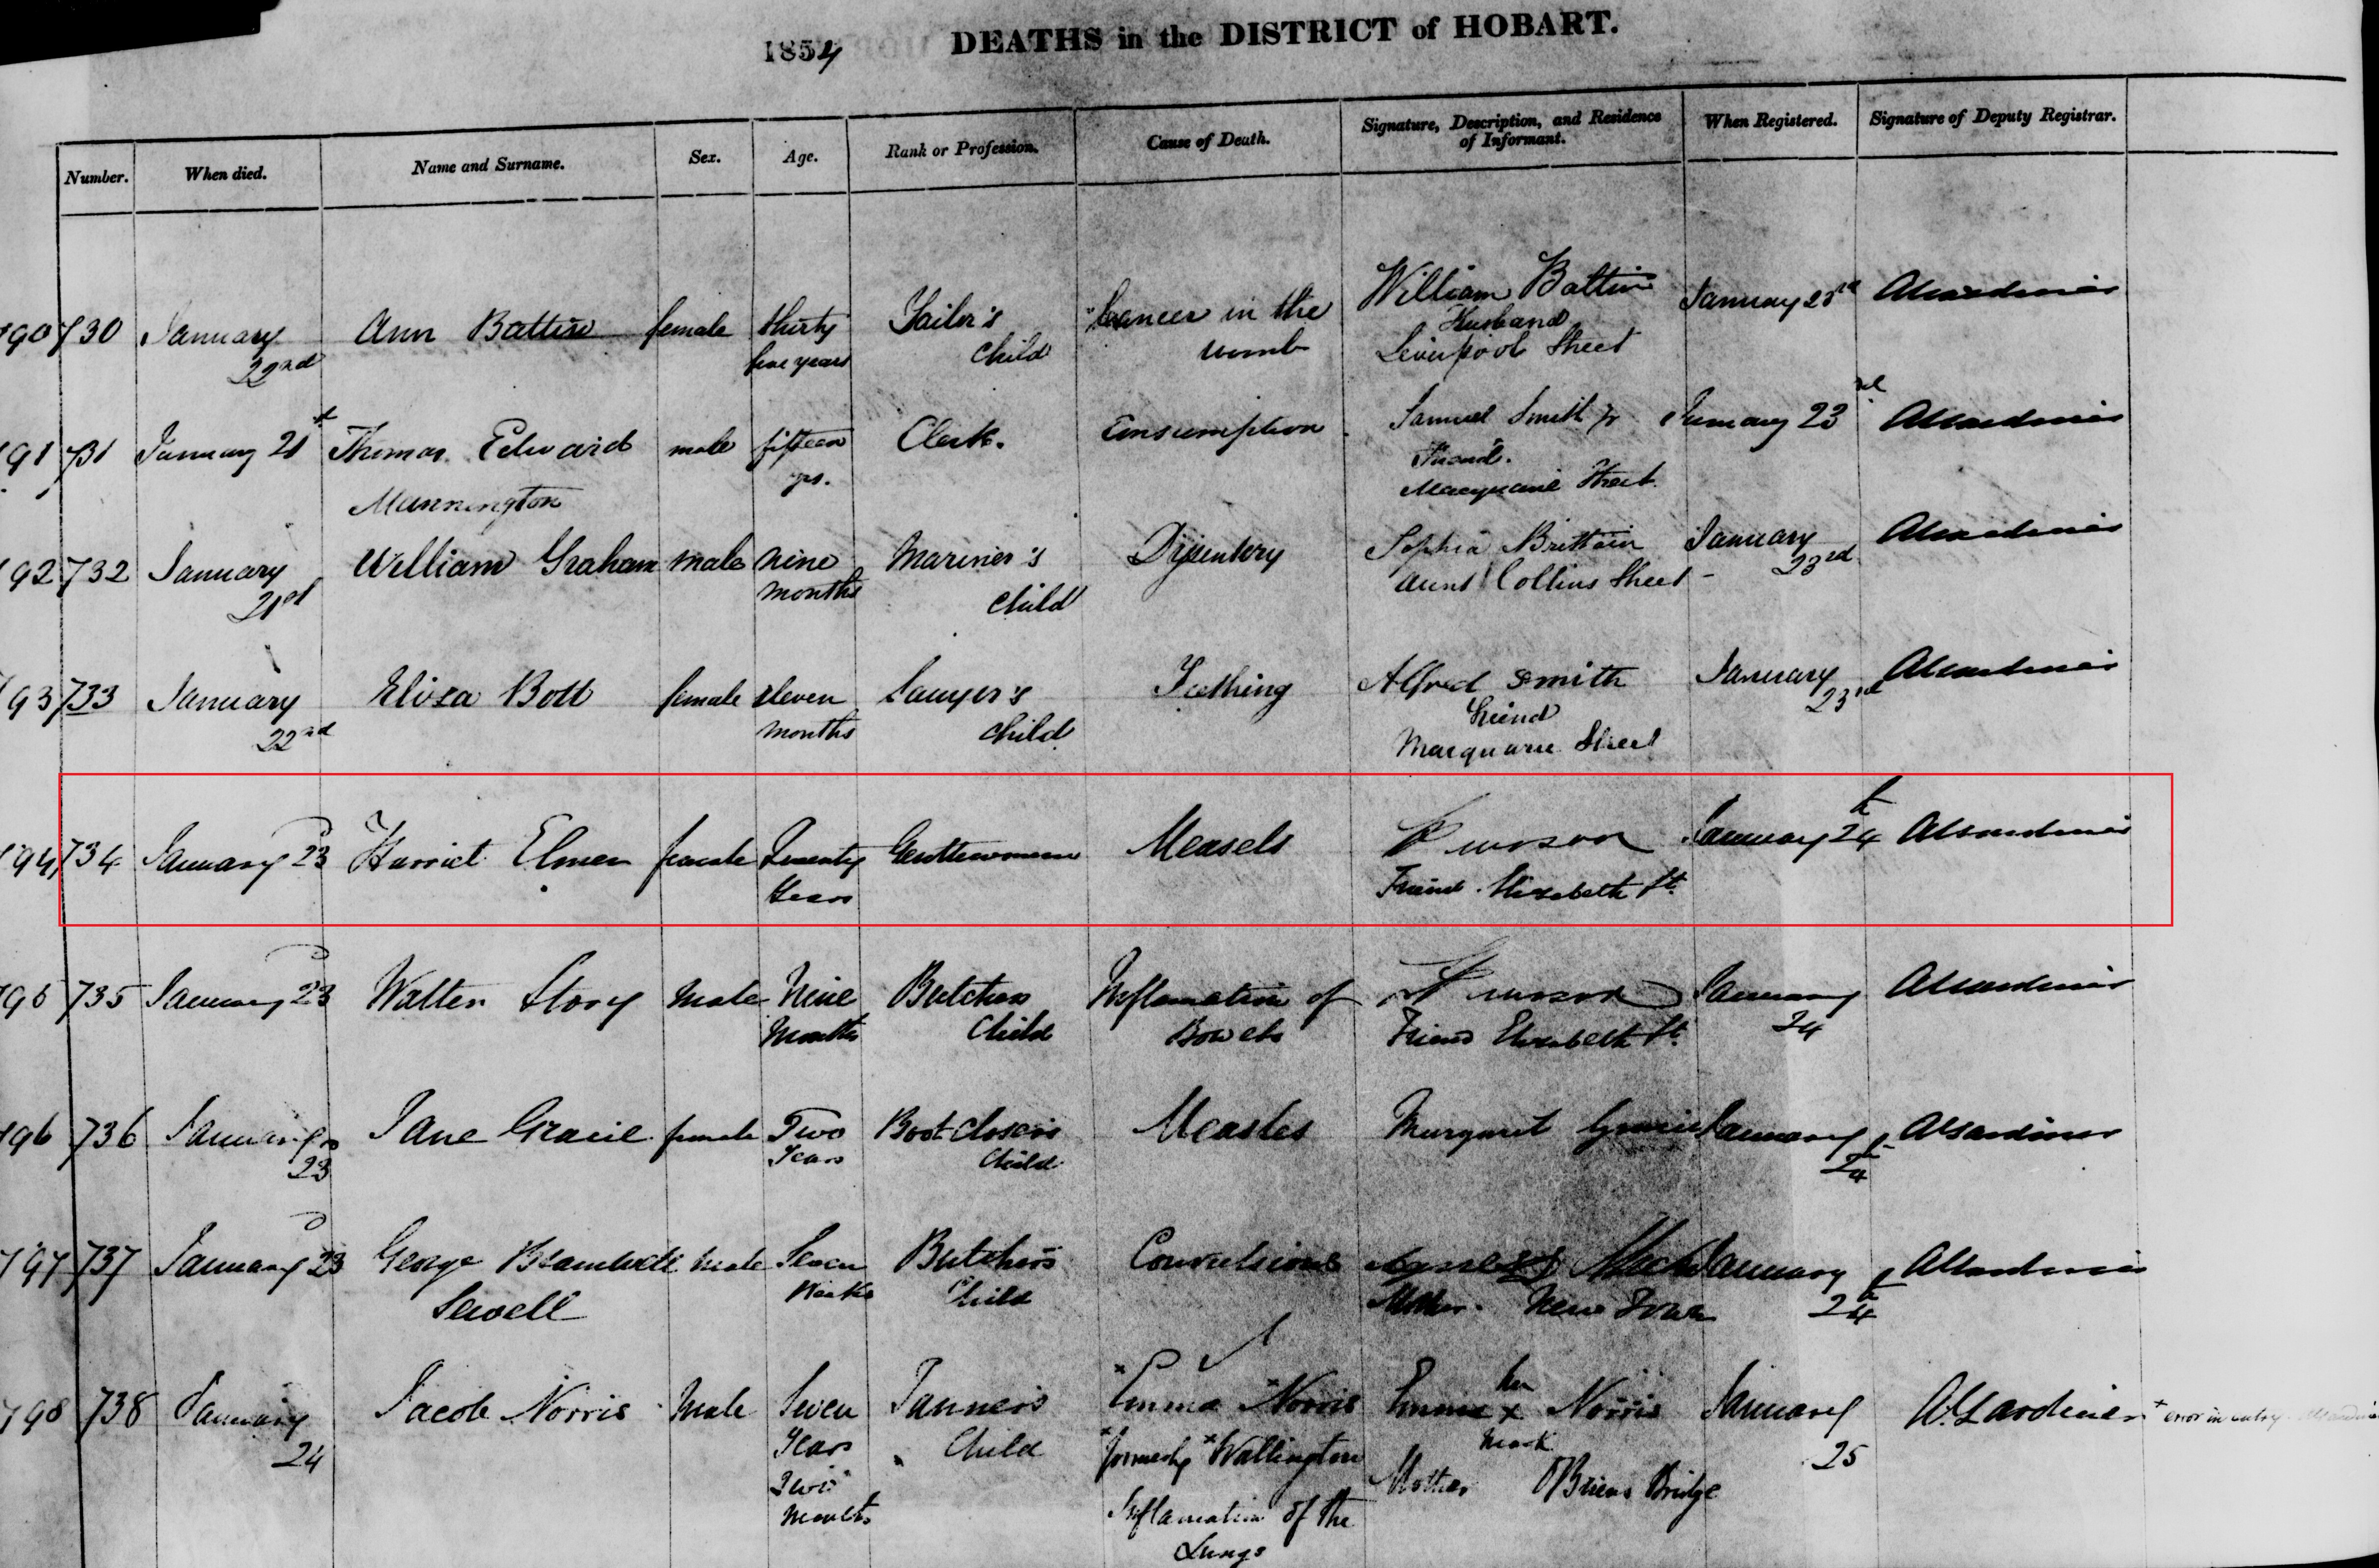 1854 DEATHS in the DISTRICT of HOBART.
Number. When died. Name and Surname. Sex. Age. Rank or Profession. Cause of Death. Signature, Description, and Residence of Informant. When Registered. Signature of Deputy Registrar.
190 730 January 22nd Ann Batten female thirty five years Tailor's Child Cancer in the womb William Batten Husband Liverpool Street January 23rd
191 731 January 21st Thomas Edward Mannington male fifteen yrs. Clerk. Consumption Samuel Smith Jr Friend. Macquarie Street January 23rd
192 732 January 21st William Graham male nine months Mariner's child Dysentery Sophia Brittain aunt Collins Street January 23rd
193 733 January 22nd Eliza Bott female eleven months Sawyer's child Teething Alfred Smith friend Macquarie Street January 23rd
194 734 January 23 Harriet Elmer female Twenty Years Gentlewoman Measels Friend Elizabeth St. January 24th
195 735 January 23 Walter Story Male Nine Months Butchers Child Inflamation of Bowels Friend Elizabeth St. January 24
196 736 January 23 Jane Gracie female Two Years Boot closers Child Measles Margaret Gracie January 24th A Gardiner
197 737 January 23 George Bramwell Sewell Male Seven Weeks Butchers Child Convulsions Mother. New Town January 24th
198 738 January 24 Jacob Norris Male Seven Years Two Months Tanners Child Emma Norris formerly Wallington Inflamation of the Lungs Emma her x mark Norris Mother O'Briens Bridge January 25 A. Gardiner error in entry